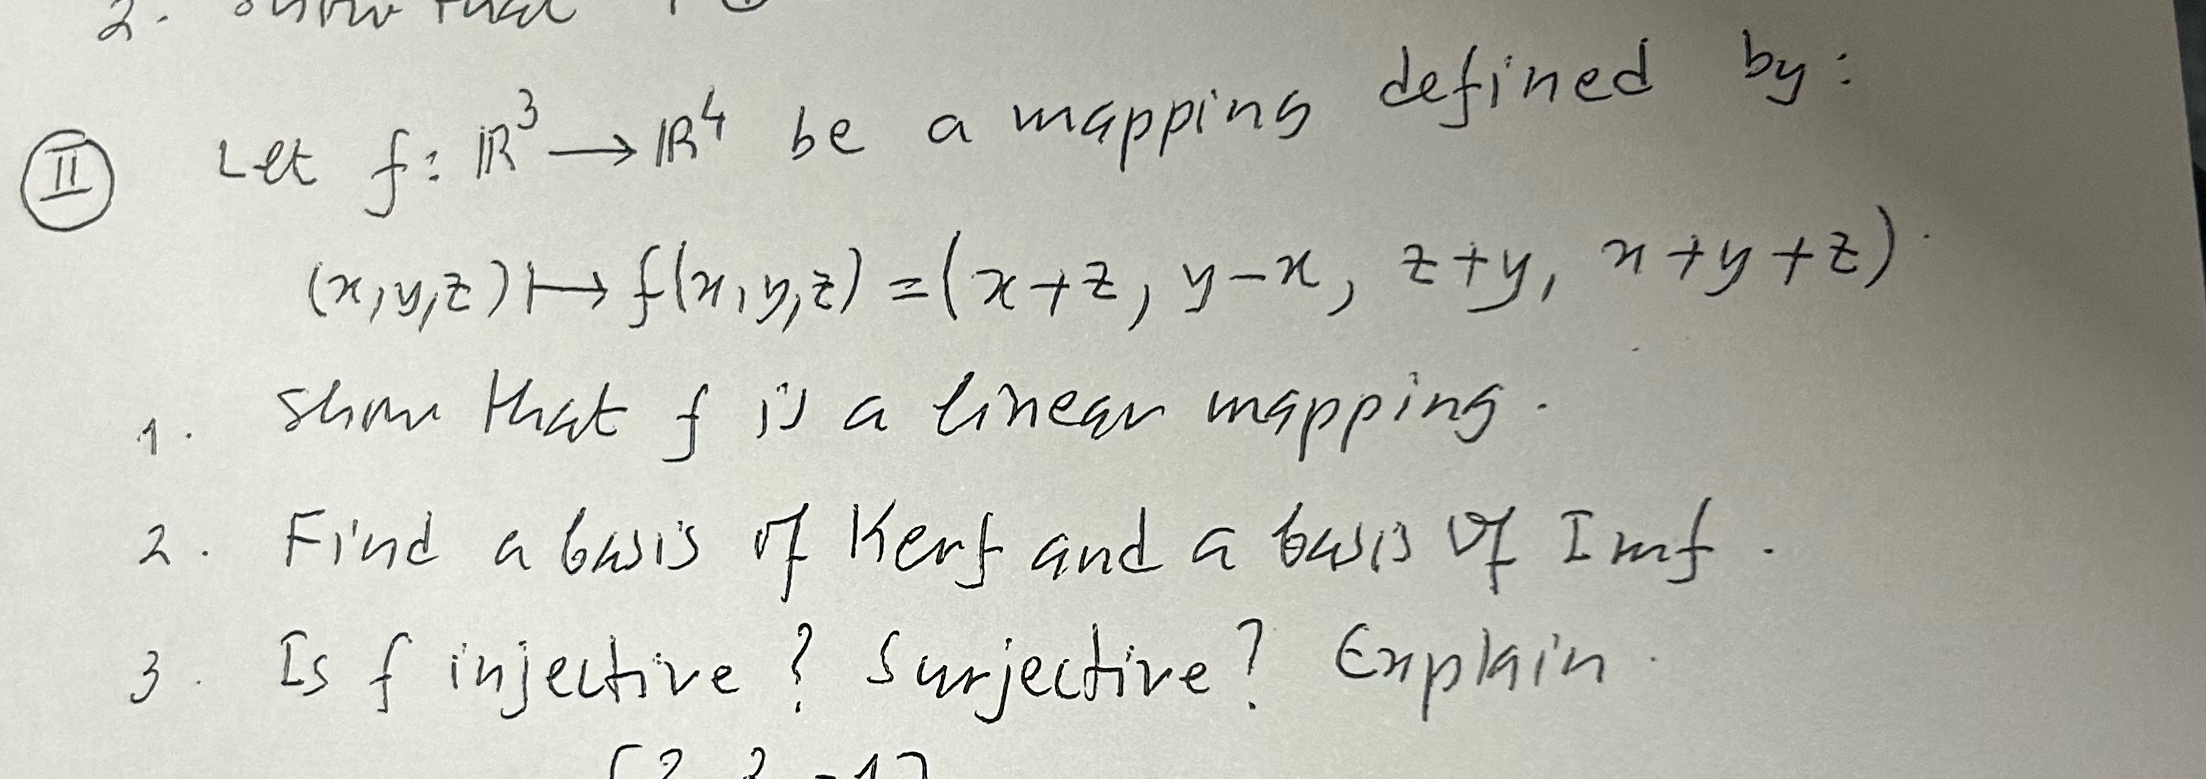 2. show that
II Let f: ℝ³ → ℝ⁴ be a mapping defined by:
(x,y,z) ↦ f(x,y,z) = (x+z, y-x, z+y, x+y+z).
1. Show that f is a linear mapping.
2. Find a basis of Kerf and a basis of Imf.
3. Is f injective? Surjective? Explain.
[2 2 -1]